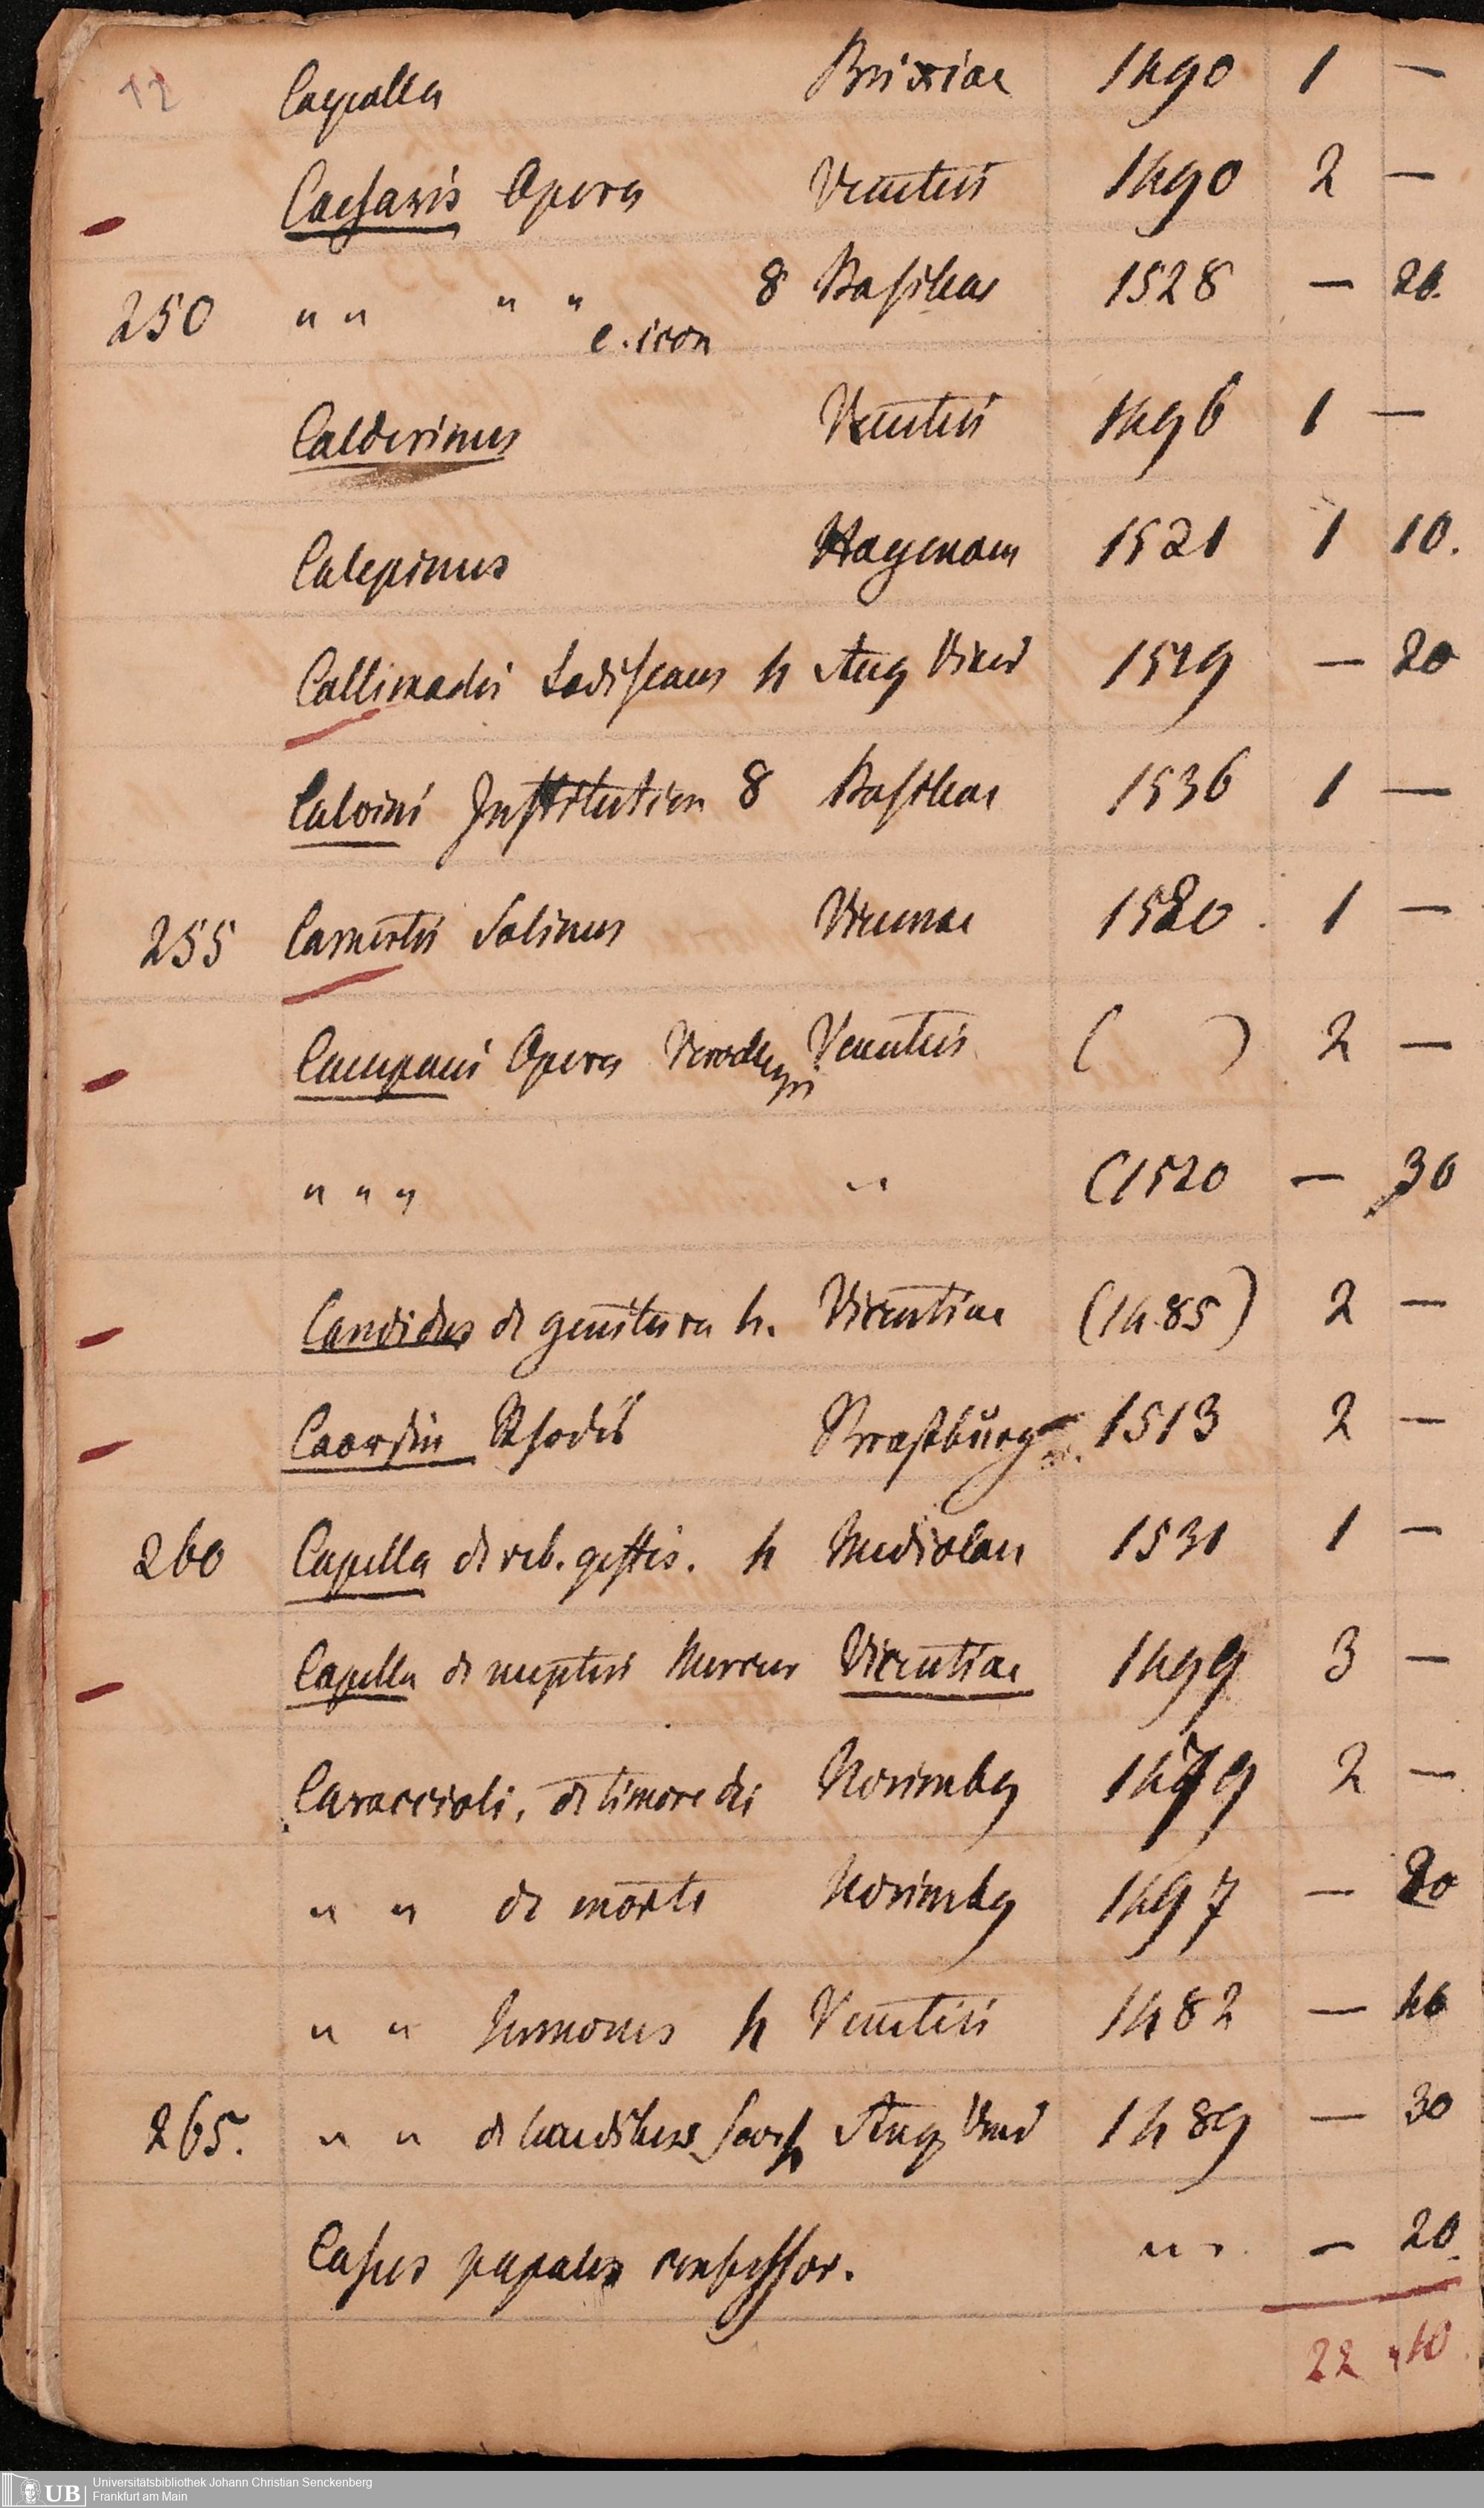 12
Capella Brixiae 1490 1 —
Caesaris Opera Venetiis 1490 2 —
250 " " " " 8 Basileae 1528 — 20.
c. icon
Calderinus Venetiis 1496 1 —
Calepinus Hagenoau 1521 1 10.
Callimachi Ladislaus 4 Aug Vind 1519 — 20
Calvini Institution 8 Basileae 1536 1 —
255 Camertis Solinus Viennae 1520. 1 —
Campani Opera Venetiis ( ) 2 —
" " " " (1520 — 30
Candidus de genitura 4. Vicentiae (1485) 2 —
Caorsin Rhodis Strassburg 1513 2 —
260 Capella de reb. gestis. 4 Mediolan 1531 1 —
Capella de nuptiis Mercur Vicentiae 1499 3 —
Caraccioli, de timore dei Norimbg 1479 2 —
" " de morte Norimbg 1497 — 20
" " Sermones 4 Venetiis 1482 — 40
265. " " de laudibus Aug Vind 1489 — 30
Casus papales confessor. — 20.
22 „ 10.
Universitätsbibliothek Johann Christian Senckenberg
UB Frankfurt am Main